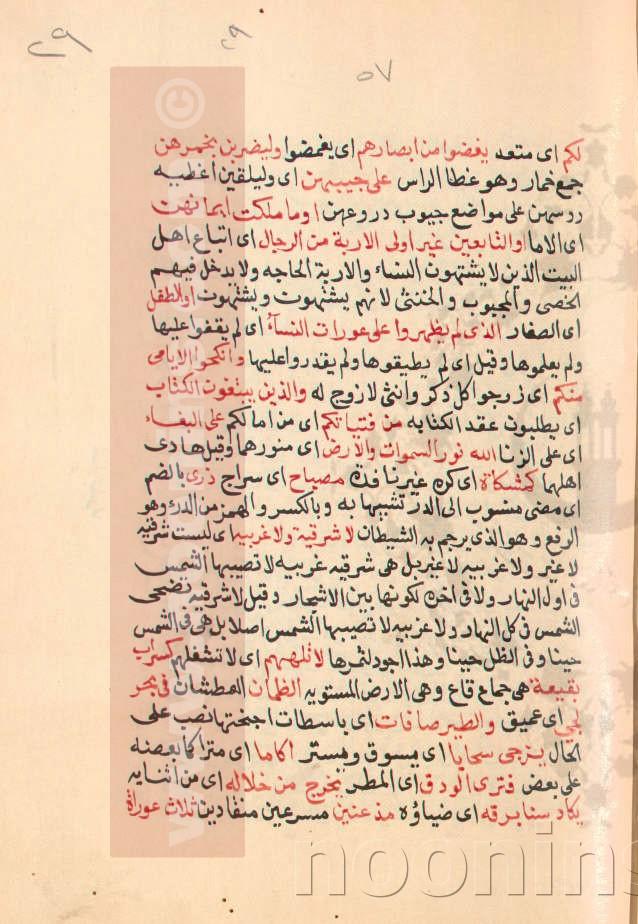 ٢٩
٢٩
٥٧
لكم اى متعد يغضوا من ابصارهم اى يغمضوا وليضربن بخمرهن
جمع خمار وهو غطا الراس على جيوبهن اى وليلقين اغطيه
روسهن على مواضع جيوب دروعهن اوما ملكت ايمانهن
اى الاما اوالتابعين غير اولى الاربة من الرجال اى اتباع اهل
البيت الذين لا يشتهوت النساء والاربة الحاجه ولا يدخل فيهم
الخصى والمجبوب والخنثى لانهم يشتهوت ويشتهوت اوالطفل
اى الصغار الذى لم يظهروا على عورات النسآء اى لم يقفوا عليها
ولم يعلموها وقيل اى لم يطيقوها ولم يقدروا عليها وانكحوا الايامى
منكم اى زوجوا كل ذكر وانثى لا زوج له والذين يبتغوت الكتاب
اى يطلبوت عقد الكتابه من فتياتكم اى من امائكم على البغاء
اى على الزنا الله نور السموات والارض اى منورهما وقيل هادى
اهلهما كمشكاة اى كوه غير نافذة مصباح اى سراج درى بالضم
اى مضى منسوب الى الدر تشبيها به وبالكسر والهمز من الدرء وهو
الرفع وهو الذى يرجم به الشيطان لا شرقية ولا غربيه اى ليست شرقيه
لا غير ولا غربيه لا غير بل هى شرقيه غربيه لا تصيبها الشمس
فى اول النهار ولا فى اخره لكونها بين الاشجار وقيل لا شرقيه تضحى
الشمس فى كل النهار ولا غربيه لا تصيبها الشمس اصلا بل هى فى الشمس
حينا وفى الظل حينا وهذا اجود لثمرها لا تلهيهم اى لا تشغلهم كسراب
بقيعة هى جماع قاع وهى الارض المستويه الظمان العطشان فى بحر
لجى اى عميق والطير صافات اى باسطات اجنحتها نصب على
الحال يزجى سحابا اى يسوق ركاما اى متراكما بعضه
على بعض فترى الودق اى المطر يخرج من خلاله اى من اثنايه
يكاد سنا برقه اى ضياؤه مذعنين مسرعين منقادين ثلاث عورات
nooning